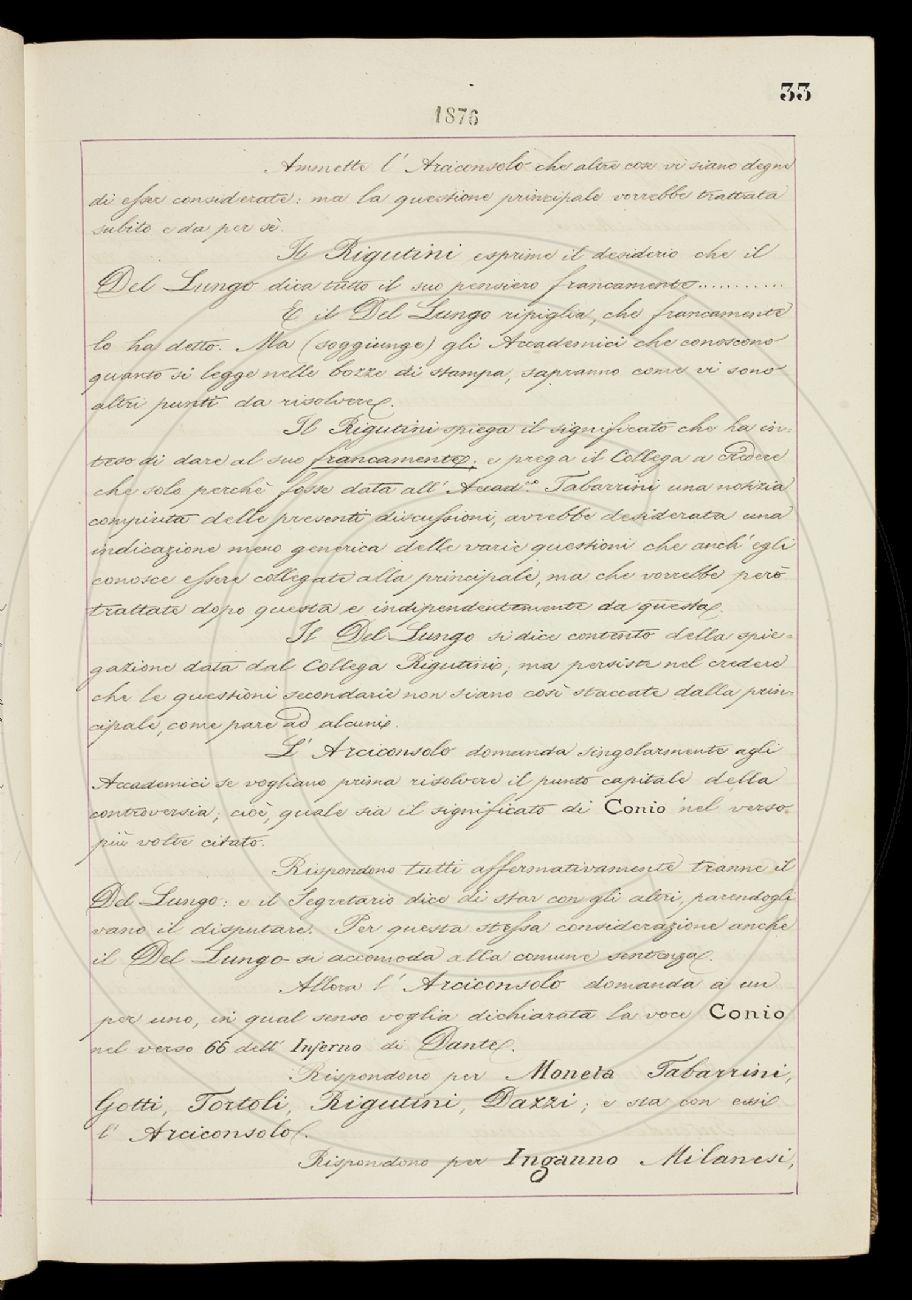 33
1876
Ammette l'Arciconsolo che altre cose vi siano degne
di esser considerate: ma la questione principale vorrebbe trattata
subito e da per sè.
Il Rigutini esprime il desiderio che il
Del Lungo dica tutto il suo pensiero francamente...........
E il Del Lungo ripiglia, che francamente
lo ha detto. Ma (soggiunge) gli Accademici che conoscono
quanto si legge nelle bozze di stampa, sapranno come vi sono
altri punti da risolvere.
Il Rigutini spiega il significato che ha in-
teso di dare al suo francamente; e prega il Collega a credere
che solo perchè fosse data all'Accad.co Tabarrini una notizia
compiuta delle presenti discussioni, avrebbe desiderata una
indicazione meno generica delle varie questioni che anch'egli
conosce essere collegate alla principale, ma che vorrebbe però
trattate dopo questa e indipendentemente da questa.
Il Del Lungo si dice contento della spie-
gazione data dal Collega Rigutini; ma persiste nel credere
che le questioni secondarie non siano così staccate dalla prin-
cipale, come pare ad alcuni.
L'Arciconsolo domanda singolarmente agli
Accademici se vogliano prima risolvere il punto capitale della
controversia; cioè, quale sia il significato di Conio nel verso
più volte citato.
Rispondono tutti affermativamente tranne il
Del Lungo: e il Segretario dice di star con gli altri, parendogli
vano il disputare. Per questa stessa considerazione anche
il Del Lungo si accomoda alla comune sentenza.
Allora l'Arciconsolo domanda a un
per uno, in qual senso voglia dichiarata la voce Conio
nel verso 66 dell'Inferno di Dante.
Rispondono per Moneta Tabarrini,
Gotti, Tortoli, Rigutini, Dazzi; e sta con essi
l'Arciconsolo.
Rispondono per Inganno Milanesi,